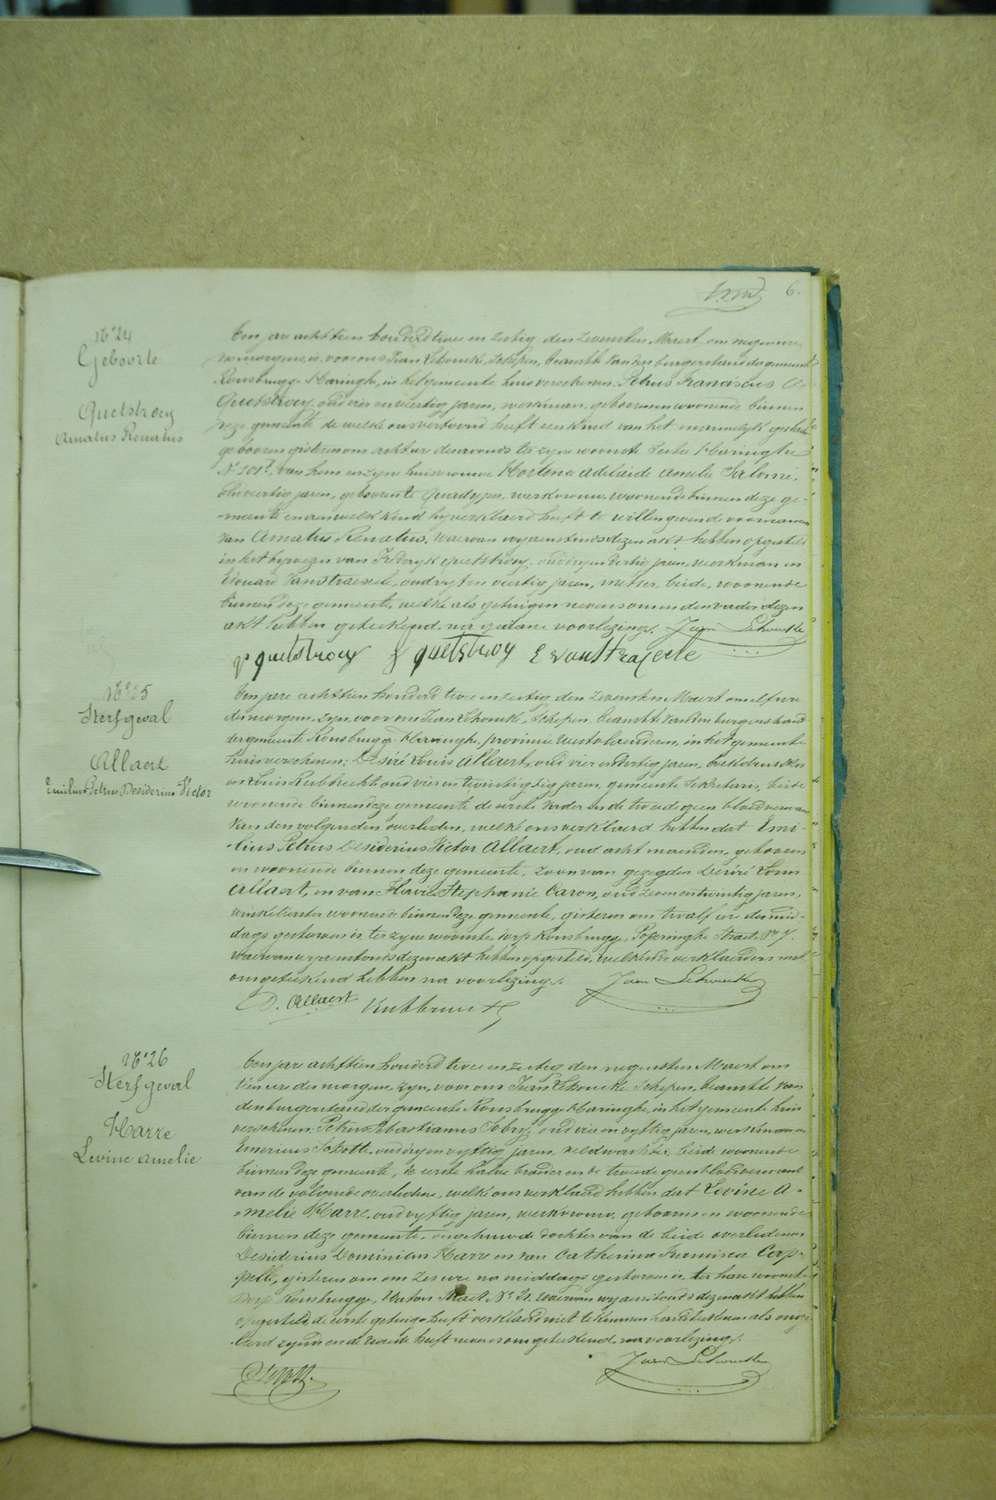 6.
N° 24
Geboorte
Quetstroey
Amatus Renatus
Ten jare achttien honderd twee en zestig den zevensten Maert om negen ure
voormorgen, is voor ons Jean Schoucke Schepen, beambte van den burgerstand der gemeente
Ronsbrugge Haringhe, in het gemeente huis verschenen Petrus Franciscus
Quetstroey, oud vier en veertig jaren, werkman, geboren en woonende binnen
deze gemeente de welke ons vertoond heeft een kind van het mannelijk geslacht
geboren gisteren om acht ure des avonds te zyne woonste Haringhe
N° van hem en zyne huisvrouwe Hortensa Adelaide Amelie
veertig jaren, geboren te Quadypre, werkvrouw, woonende binnen deze ge-
meente en aen welk kind hy verklaerd heeft te willen geven de voornamen
van Amatus Renatus, waervan wy aenstonds dezen akt hebben opgesteld
in het bywezen van Frederyk Quetstroey, oud dertig jaren, werkman en
Edouard Vanstraeseele, oud vyf en veertig jaren, beide, woonende
binnen deze gemeente, welke als getuigen nevens ons en den vader dezen
akt hebben geteekend, na gedane voorlezing. Jean Schoucke
P quetstroey F quetstroey E vanstraeseele
N° 25
Sterfgeval
Allaert
Emilius Petrus Desiderius Victor
Ten jare achttien honderd twee en zestig den zevensten Maert om elf ure
des morgens, zyn voor ons Jean Schoucke, Schepen, beambte van den burgerstand
der gemeente Ronsbrugge Haringhe, provincie Westvlaenderen, in het gemeente
huis verschenen: Désiré Louis Allaert, oud vier en dertig jaren,
en Louis Rubbrecht oud vier en twintig jaren, gemeente Sekretaris, beide
woonende binnen deze gemeente de eerste vader en de tweede geen bloedverwant
van den volgenden overleden, welke ons verklaerd hebben dat Emi-
lius Petrus Desiderius Victor Allaert, oud acht maenden, geboren
en woonende binnen deze gemeente, zoon van gezegden Désiré Louis
Allaert, en van Stephanie Caron, oud zeven en twintig jaren,
winkelierster woonende binnen deze gemeente, gisteren om twaelf ure des mid-
dags gestorven is te zyne woonste, dorp Ronsbrugge, Poperinghe Straet, N° 7.
waervan wy aenstonds dezen akt hebben opgesteld, welke de verklaerders met
ons geteekend hebben na voorlezing. Jean Schoucke
D. Allaert Rubbrecht
N° 26
Sterfgeval
Harre
Levine Amelie
Ten jare achttien honderd twee en zestig den negensten Maert om
tien ure des morgens, zyn, voor ons Jean Schoucke Schepen, beambte van
den burgerstand der gemeente Ronsbrugge Haringhe, in het gemeente huis
verschenen: Petrus Sebastianus oud vier en vyftig jaren, werkman en
oud vyftig jaren, veldwachter, beide woonende
binnen deze gemeente, de eerste halve broeder en de tweede geen bloedverwant
van de volgende overledene, welke ons verklaerd hebben dat Levine A-
melie Harre, oud vyftig jaren, werkvrouw, geboren en woonende
binnen deze gemeente, ongehuwde dochter van de beide overledenen
Desiderius Dominicus Harre en van Catherina Francisca
gisteren om zes ure na middags gestorven is, ter hare woonste
Dorp Ronsbrugge, Straet N° 21. waervan wy aenstonds dezen akt hebben
opgesteld, de eerste getuige heeft verklaerd niet te kunnen handteekenen als onge-
leerd zynde en de tweede heeft nevens ons geteekend, na voorlezing.
Jean Schoucke